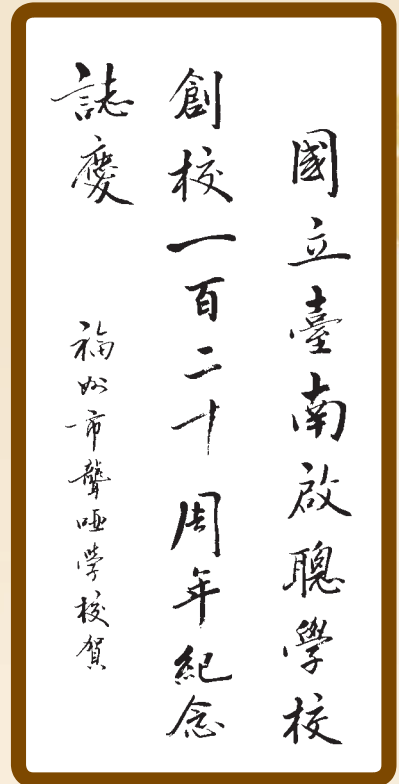 國立臺南啟聰學校
創校一百二十周年紀念
誌慶
福州市聾哑学校賀